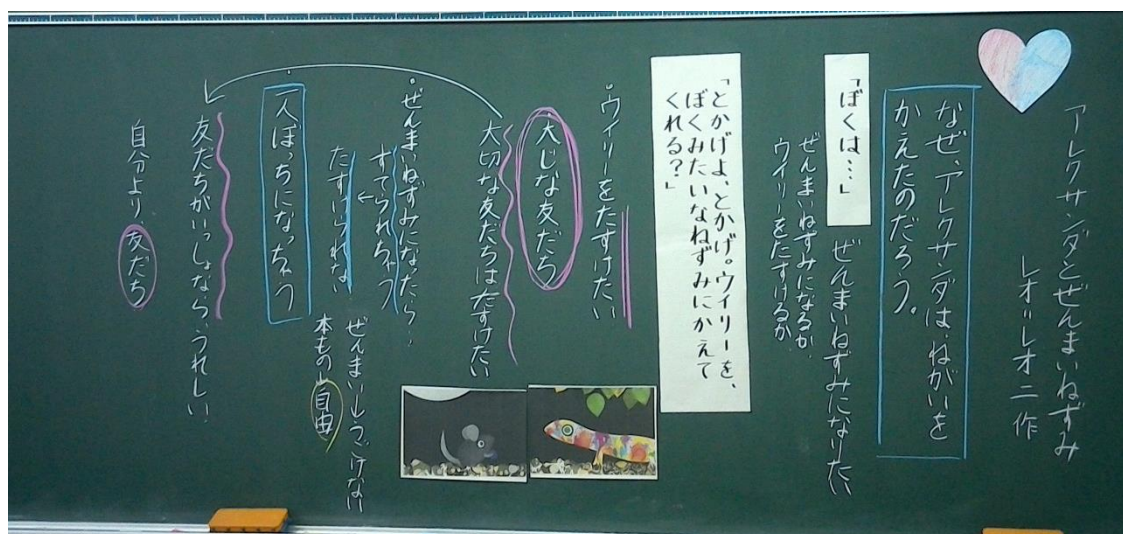 アレクサンダとぜんまいねずみ
レオ=レオニ作
なぜ、アレクサンダは、ねがいを
かえたのだろう。
「ぼくは…」
ぜんまいねずみになりたい
ぜんまいねずみになるか、
ウイリーをたすけるか
「とかげよ、とかげ。ウイリーを、
ぼくみたいなねずみにかえて
くれる?」
・ウイリーをたすけたい
大じな友だち
大切な友だちはたすけたい
・ぜんまいねずみになったら…
すてられちゃう
←
たすけられない
ぜんまい→うごけない
本もの→自由
・一人ぼっちになっちゃう
友だちがいっしょなら、うれしい
自分より、友だち